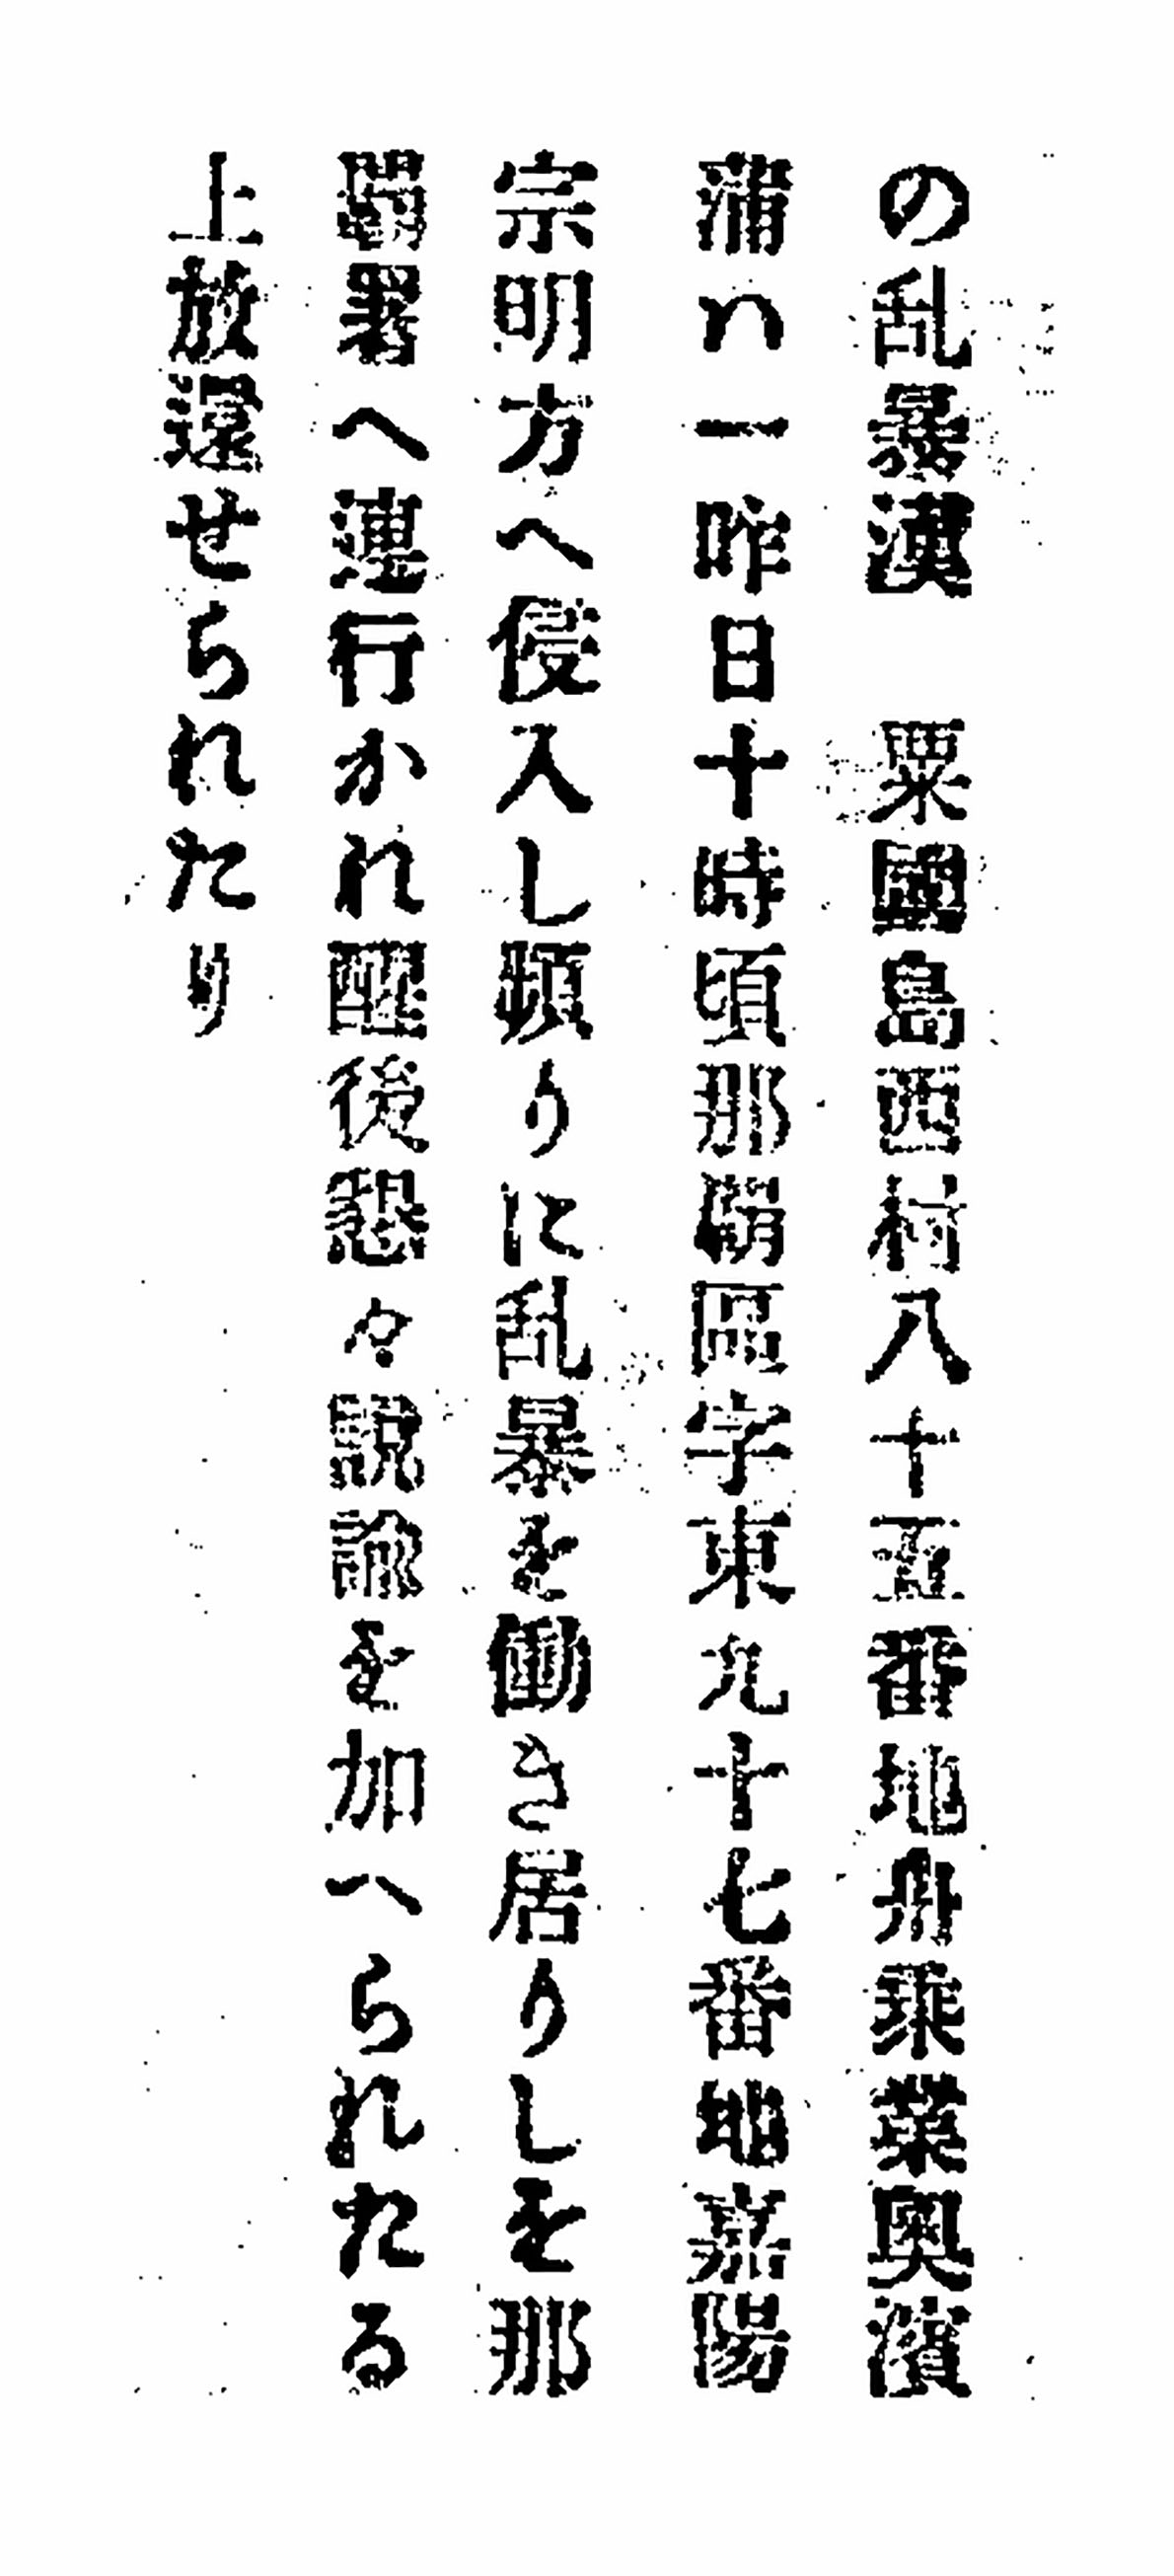 の乱暴漢　粟國島西村八十五番地舟乗業奥濱
蒲ハ一昨日十時頃那覇區字東九十七番地嘉陽
宗明方へ侵入し頻りに乱暴を働き居りしを那
覇署へ連行かれ醒後懇々説諭を加へられたる
上放還せられたり